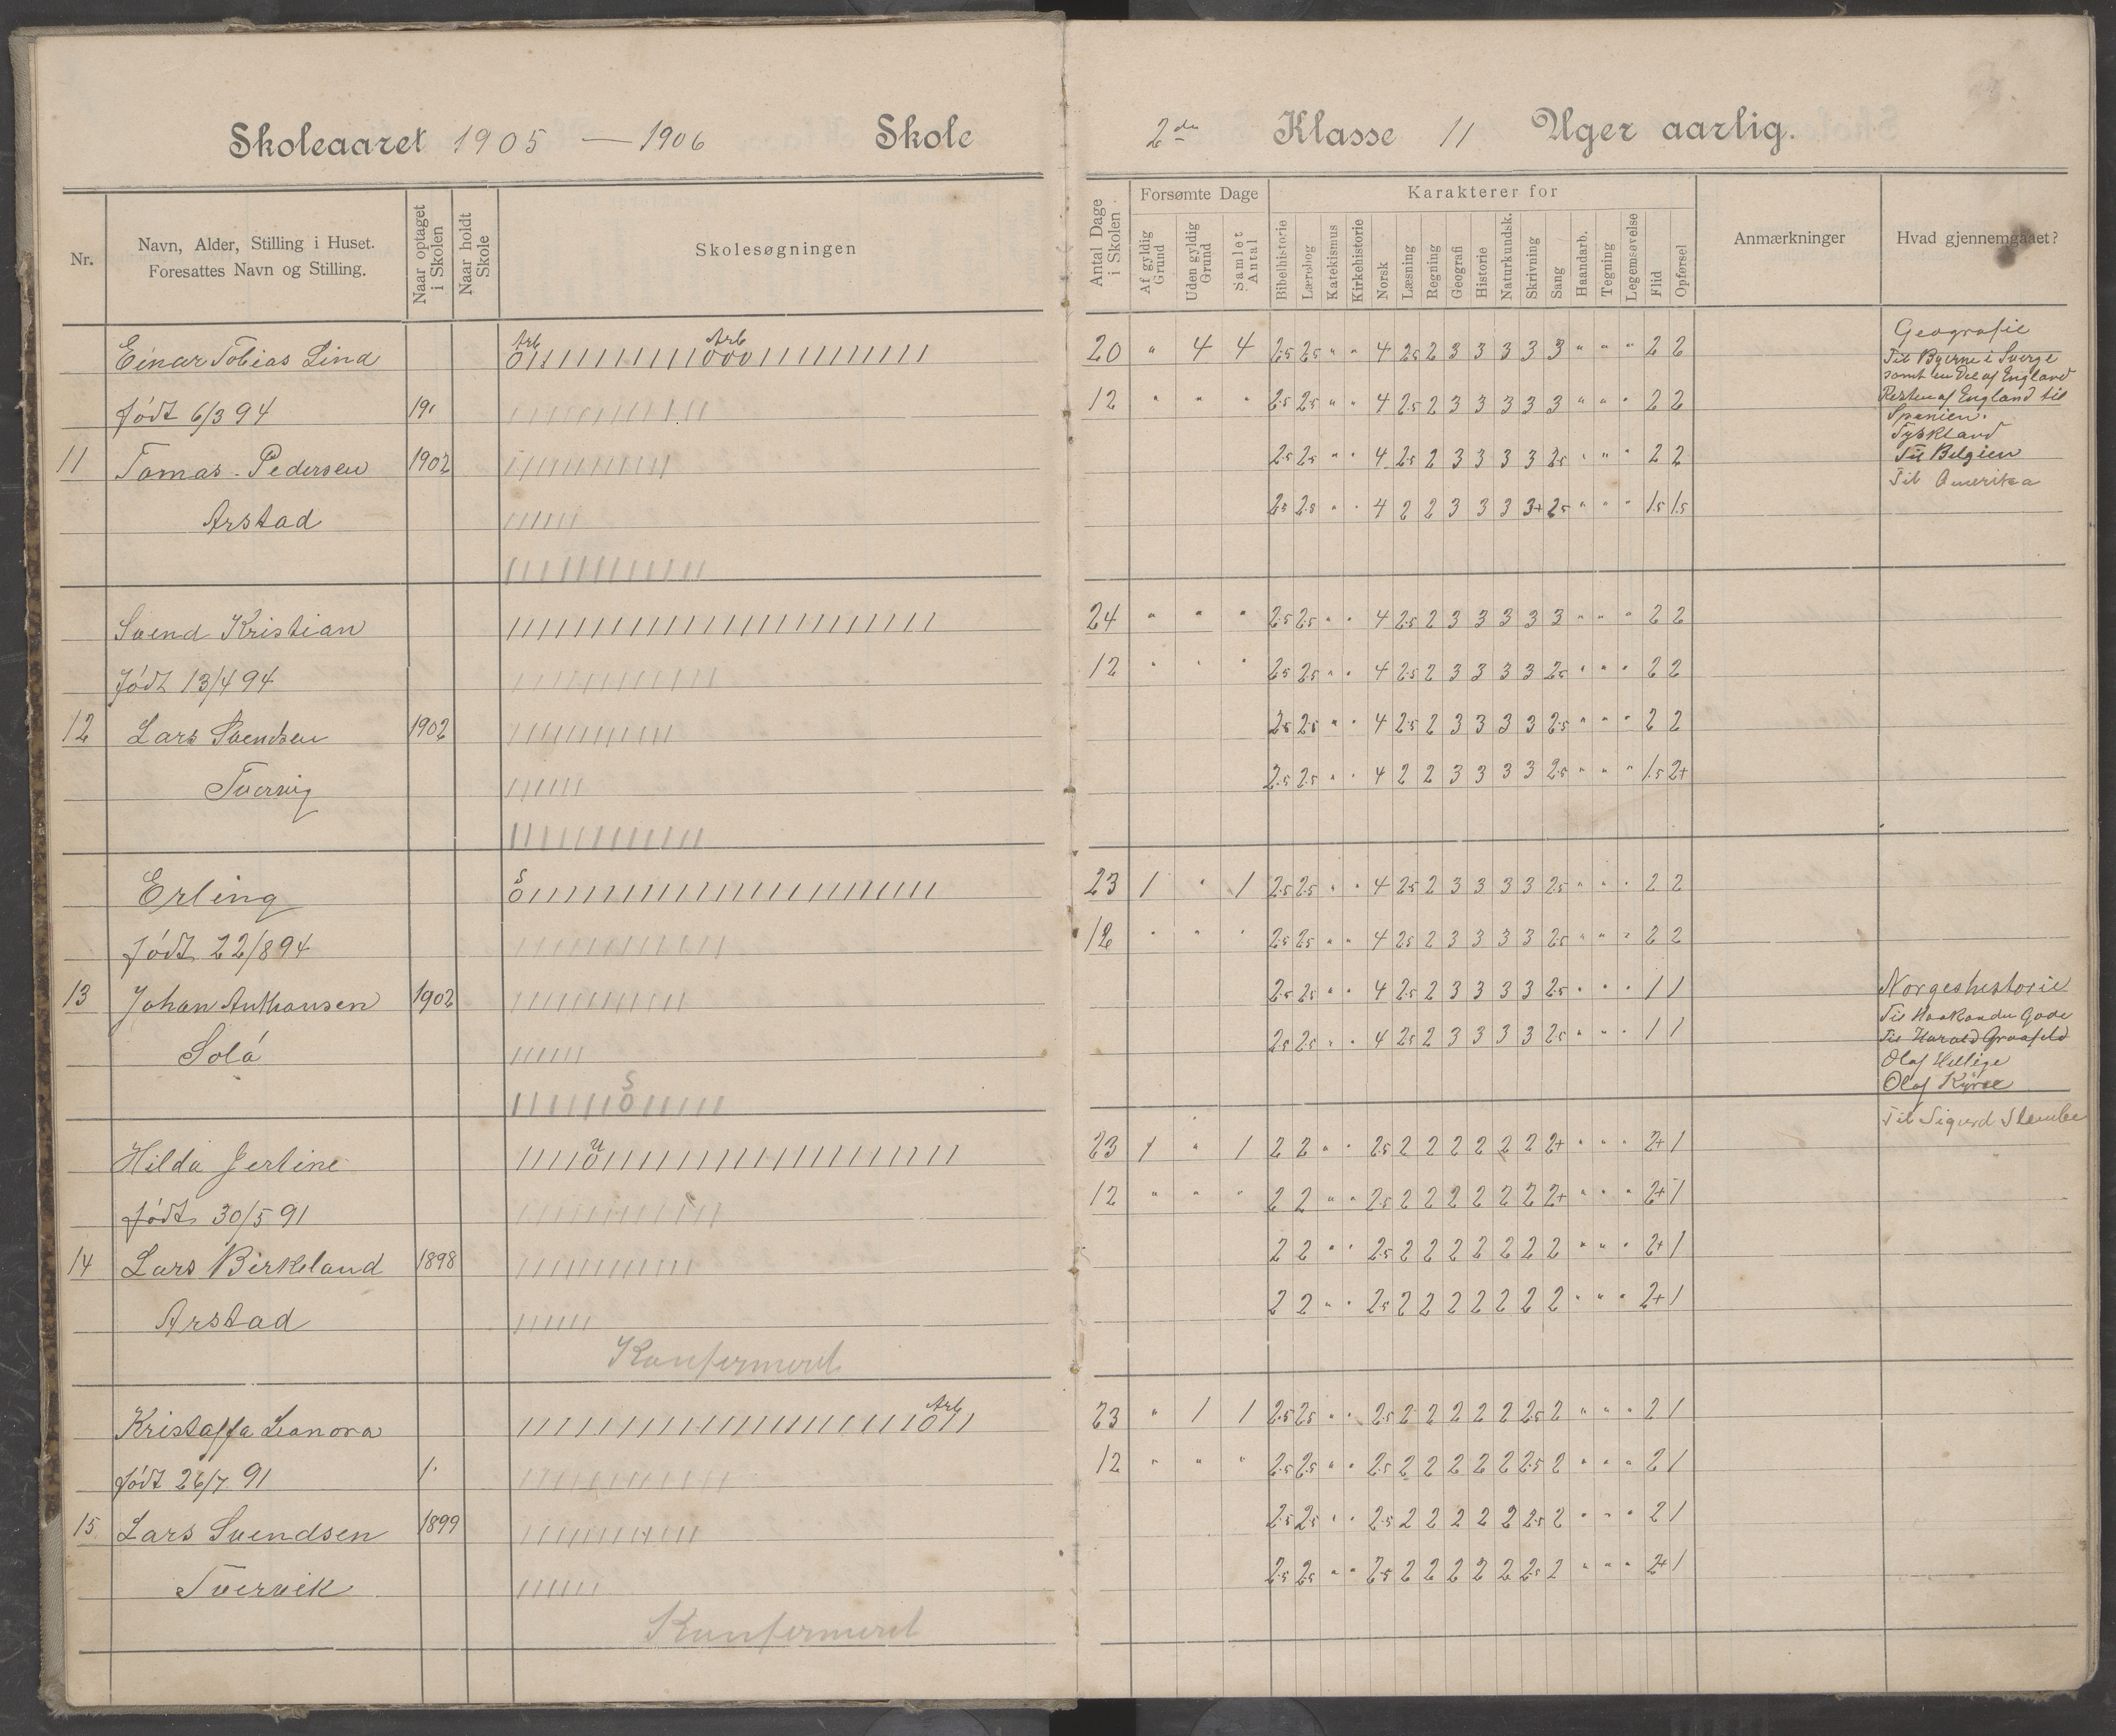 Skoleaaret 1905 — 1906 Skole
2den Klasse 11 Uger aarlig.
Nr.
Navn, Alder, Stilling i Huset.
Foresattes Navn og Stilling.
Naar optaget i Skolen
Naar holdt Skole
Skolesøgningen
Antal Dage i Skolen
Forsømte Dage
Af gyldig Grund
Uden gyldig Grund
Samlet Antal
Karakterer for
Bibelhistorie
Lærebog
Katekismus
Kirkehistorie
Norsk
Læsning
Regning
Geografi
Historie
Naturkundsk.
Skrivning
Sang
Haandarb.
Tegning
Legemsøvelse
Flid
Opførsel
Anmærkninger
Hvad gjennemgaaet?
Einar Tobias Lind Arb Arb 20 " 4 4 2.5 2.5 " " 4 2.5 2 3 3 3 3 3 " " " 2 2
født 6/3 94 12 " " " 2.5 2.5 " " 4 2.5 2 3 3 3 3 3 " " " 2 2
11 Tomas Pedersen 1902 2.5 2.5 " " 4 2.5 2 3 3 3 3 2.5 " " " 2 2
Arstad 2.5 2.5 " " 4 2 2 3 3 3 3+ 2.5 " " " 1.5 1.5
Geografie
Til Byerne i Sverge
samt en Del af England
Resten af England til
Spanien.
Tyskland
Til Belgien
Til Amerika
Svend Kristian 24 " " " 2.5 2.5 " " 4 2.5 2 3 3 3 3 3 " " " 2 2
født 13/4 94 12 " " " 2.5 2.5 " " 4 2.5 2 3 3 3 3 2.5 " " " 2 2
12 Lars Svendsen 1902 2.5 2.5 " " 4 2.5 2 3 3 3 3 2.5 " " " 2 2
Tvervig 2.5 2.5 " " 4 2 2 3 3 3 3 2.5 " " " 1.5 2+
Erling S 23 1 " 1 2.5 2.5 " " 4 2.5 2 3 3 3 3 2.5 " " " 2 2
født 22/8 94 12 " " " 2.5 2.5 " " 4 2.5 2 3 3 3 3 2.5 " " " 2 2
13 Johan Anthonsen 1902 2.5 2.5 " " 4 2.5 2 3 3 3 3 2.5 " " " 1 1
Solå 2.5 2.5 " " 4 2.5 2 3 3 3 3 2.5 " " " 1 1
S
Norgeshistorie
Til Haakon den Gode
Til Harald Graafeld
Olaf Hellige
Olaf Kyrre
Til Sigurd Slembe
Hilda Jertine U 23 1 " 1 2 2 " " 2.5 2 2 2 2 2 2 2+ " " " 2+ 1
født 30/5 91 12 " " " 2 2 " " 2.5 2 2 2 2 2 2 2+ " " " 2+ 1
14 Lars Birkeland 1898 2 2 " " 2.5 2 2 2 2 2 2 2 " " " 2+ 1
Arstad 2 2 " " 2.5 2 2 2 2 2 2 2 " " " 2+ 1
Konfermeret
Kristaffa Leanora Arb 23 " 1 1 2.5 2.5 " " 2.5 2 2 2 2 2 2.5 2 " " " 2 1
født 26/7 91 12 " " " 2.5 2.5 " " 2.5 2 2 2 2 2 2.5 2 " " " 2 1
15 Lars Svendsen 1899 2.5 2.5 " " 2.5 2 2 2 2 2 2.5 2 " " " 2 1
Tvervik 2.5 2.5 " " 2.5 2 2 2 2 2 2.5 2 " " " 2+ 1
Konfermeret